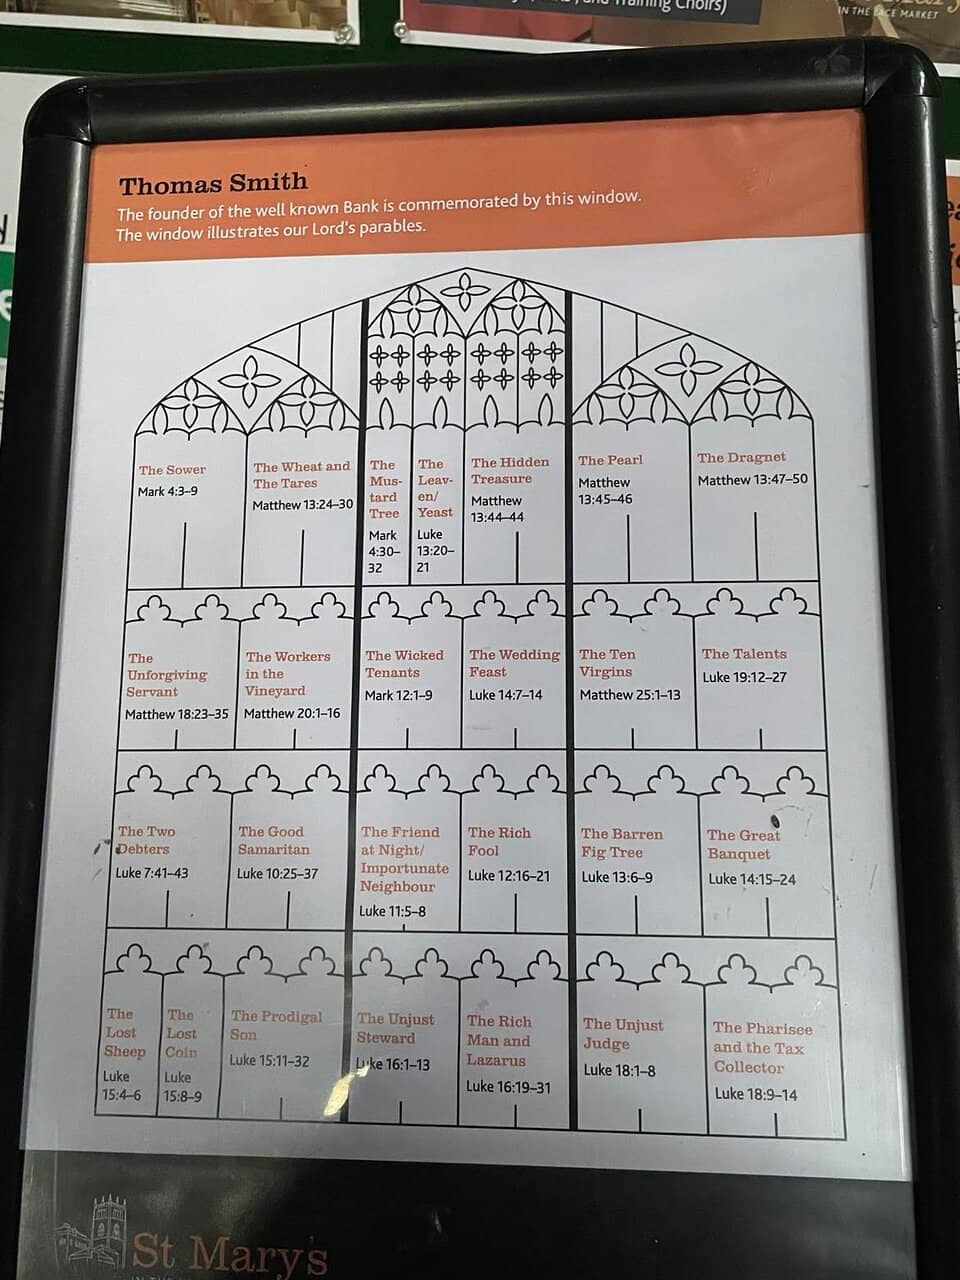 and Training Choirs)
IN THE LACE MARKET
Thomas Smith
The founder of the well known Bank is commemorated by this window.
The window illustrates our Lord's parables.
The Sower
Mark 4:3–9
The Wheat and
The Tares
Matthew 13:24–30
The
Mus-
tard
Tree
Mark
4:30–
32
The
Leav-
en/
Yeast
Luke
13:20–
21
The Hidden
Treasure
Matthew
13:44–44
The Pearl
Matthew
13:45–46
The Dragnet
Matthew 13:47–50
The
Unforgiving
Servant
Matthew 18:23–35
The Workers
in the
Vineyard
Matthew 20:1–16
The Wicked
Tenants
Mark 12:1–9
The Wedding
Feast
Luke 14:7–14
The Ten
Virgins
Matthew 25:1–13
The Talents
Luke 19:12–27
The Two
Debters
Luke 7:41–43
The Good
Samaritan
Luke 10:25–37
The Friend
at Night/
Importunate
Neighbour
Luke 11:5–8
The Rich
Fool
Luke 12:16–21
The Barren
Fig Tree
Luke 13:6–9
The Great
Banquet
Luke 14:15–24
The
Lost
Sheep
Luke
15:4–6
The
Lost
Coin
Luke
15:8–9
The Prodigal
Son
Luke 15:11–32
The Unjust
Steward
Luke 16:1–13
The Rich
Man and
Lazarus
Luke 16:19–31
The Unjust
Judge
Luke 18:1–8
The Pharisee
and the Tax
Collector
Luke 18:9–14
St Mary's